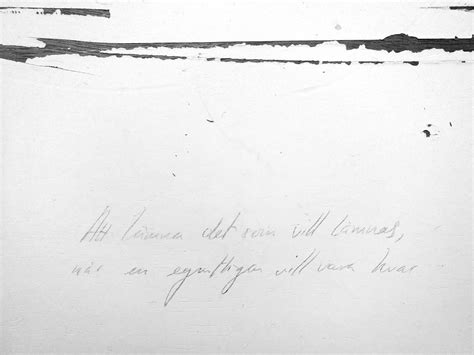 Att lämna det som vill lämnas,
när en egentligen vill vara kvar